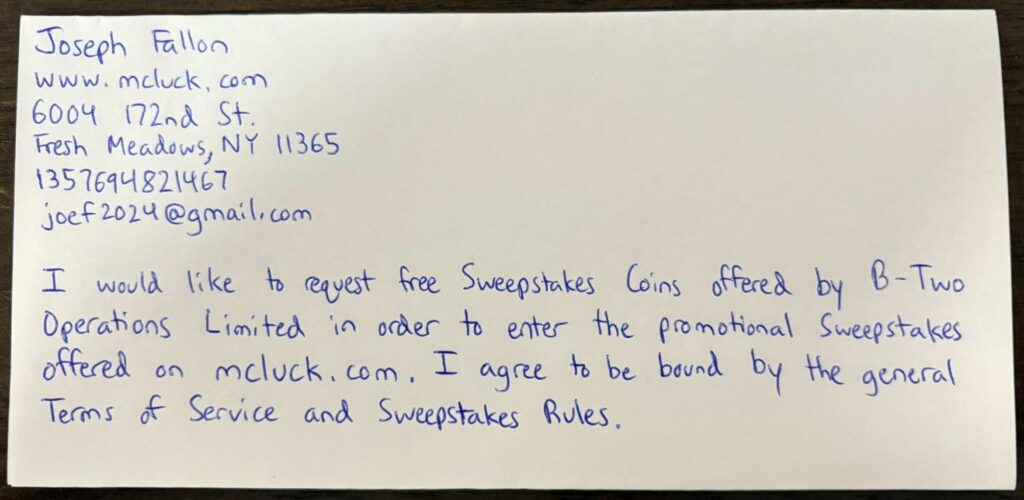 Joseph Fallon
www.mcluck.com
6004 172nd St.
Fresh Meadows, NY 11365
1357694821467
joef2024@gmail.com
I would like to request free Sweepstakes Coins offered by B-Two
Operations Limited in order to enter the promotional Sweepstakes
offered on mcluck.com. I agree to be bound by the general
Terms of Service and Sweepstakes Rules.